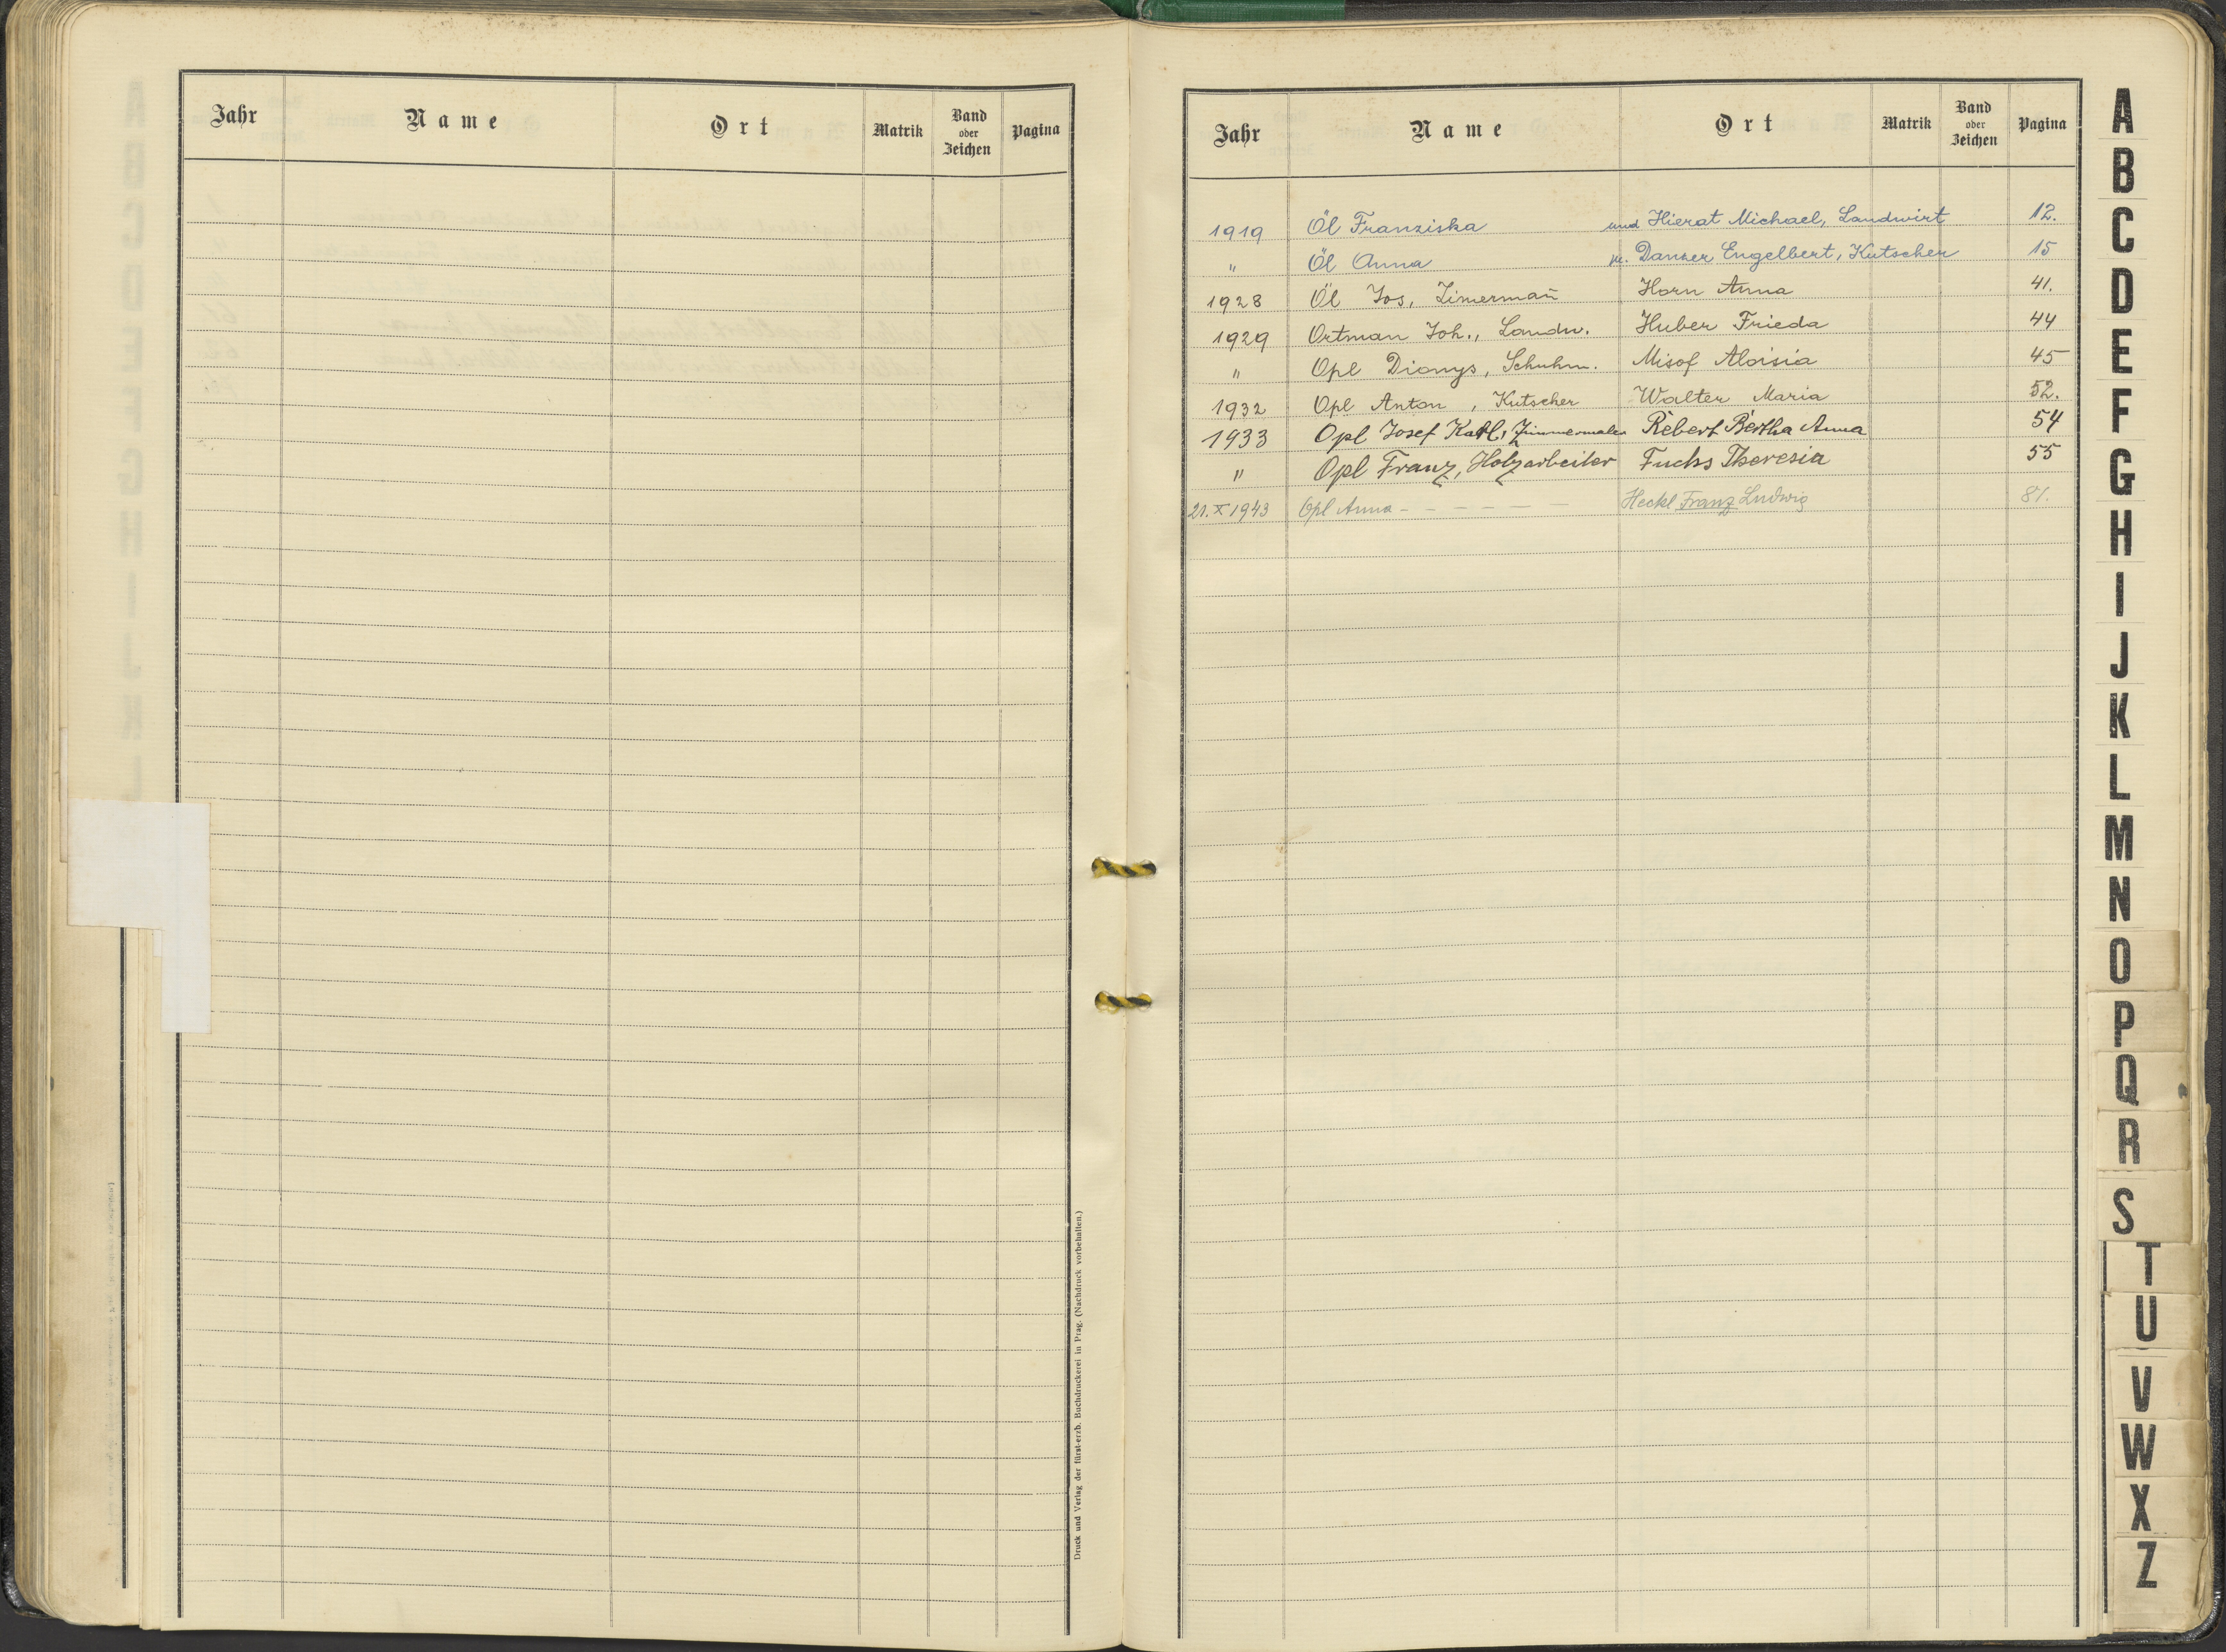 Jahr Name Ort Matrik Band oder Zeichen Pagina
Druck und Verlag der fürst-erzb. Buchdruckerei in Prag. (Nachdruck vorbehalten.)
Jahr Name Ort Matrik Band oder Zeichen Pagina
1919 Öl Franziska und Hierat Michael, Landwirt 12.
" Öl Anna u. Danzer Engelbert, Kutscher 15
1928 Öl Jos, Zimermañ Horn Anna 41.
1929 Ortman Joh., Landw. Huber Frieda 44
" Opl Dionys, Schuhm. Misof Aloisia 45
1932 Opl Anton, Kutscher Walter Maria 52.
1933 Opl Josef Karl, Zimmermaler Rebert Bertha Anna 54
" Opl Franz, Holzarbeiter Fuchs Theresia 55
21. X 1943 Opl Anna - - - - - - Heckl Franz Ludwig 81.
A
B
C
D
E
F
G
H
I
J
K
L
M
N
O
P
Q
R
S
T
U
V
W
X
Z